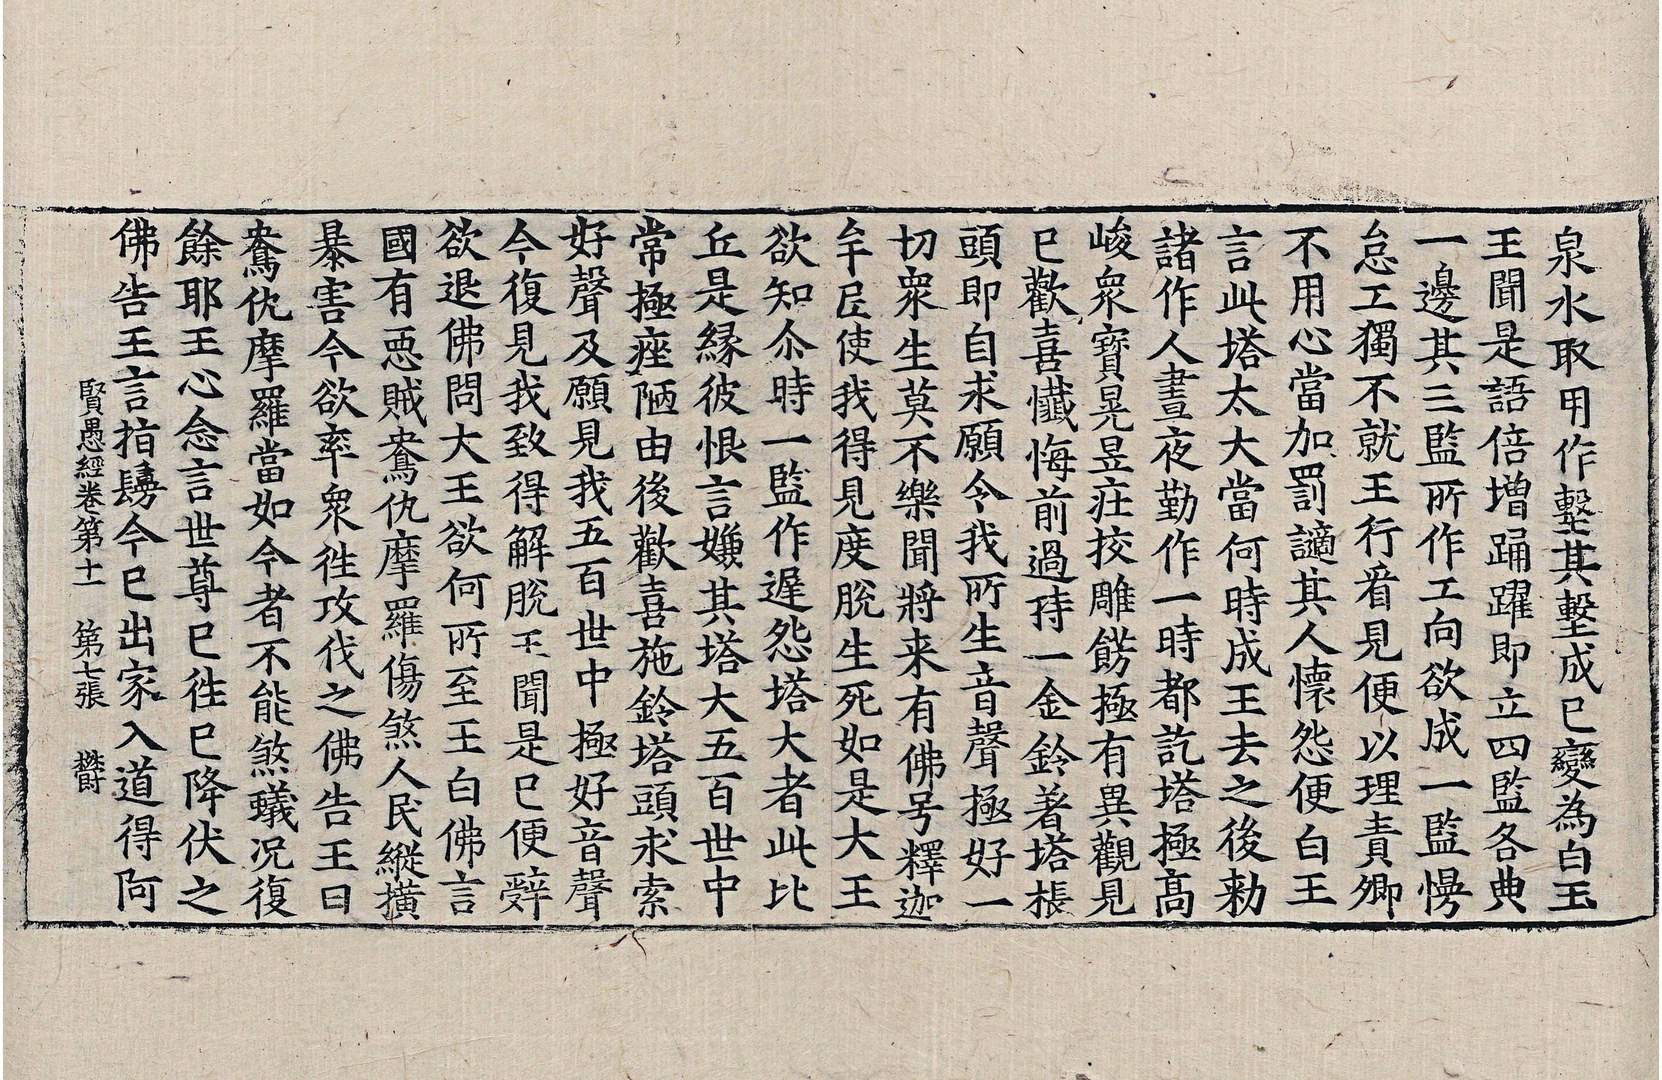 泉水取用作墼其墼成已變為白玉
王聞是語倍增踊躍即立四監各典
一邊其三監所作工向欲成一監慢
怠工獨不就王行看見便以理責卿
不用心當加罰讁其人懷怨便白王
言此塔太大當何時成王去之後勑
諸作人晝夜勤作一時都訖塔極高
峻衆寶晃昱莊挍雕餝極有異觀見
已歡喜懺悔前過持一金鈴著塔棖
頭即自求願令我所生音聲極好一
切衆生莫不樂聞將来有佛号釋迦
牟尼使我得見度脫生死如是大王
欲知尒時一監作遲怨塔大者此比
丘是緣彼恨言嫌其塔大五百世中
常極痤陋由後歡喜施鈴塔頭求索
好聲及願見我五百世中極好音聲
今復見我致得解脫王聞是已便辝
欲退佛問大王欲何所至王白佛言
國有惡賊鴦仇摩羅傷煞人民縱横
暴害今欲率衆徃攻伐之佛告王曰
鴦仇摩羅當如今者不能煞蟻况復
餘耶王心念言世尊已徃已降伏之
佛告王言指鬘今已出家入道得阿
賢愚經卷第十一 第七張 欝